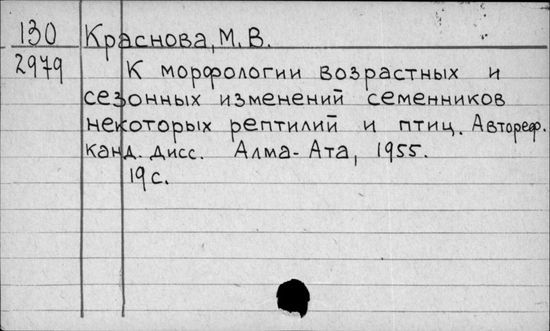 130 Краснова, М. В.
2979 К морфологии возрастных и
сезонных изменений семенников
некоторых рептилий и птиц. Автореф.
канд. дисс. Алма-Ата, 1955.
19 с.